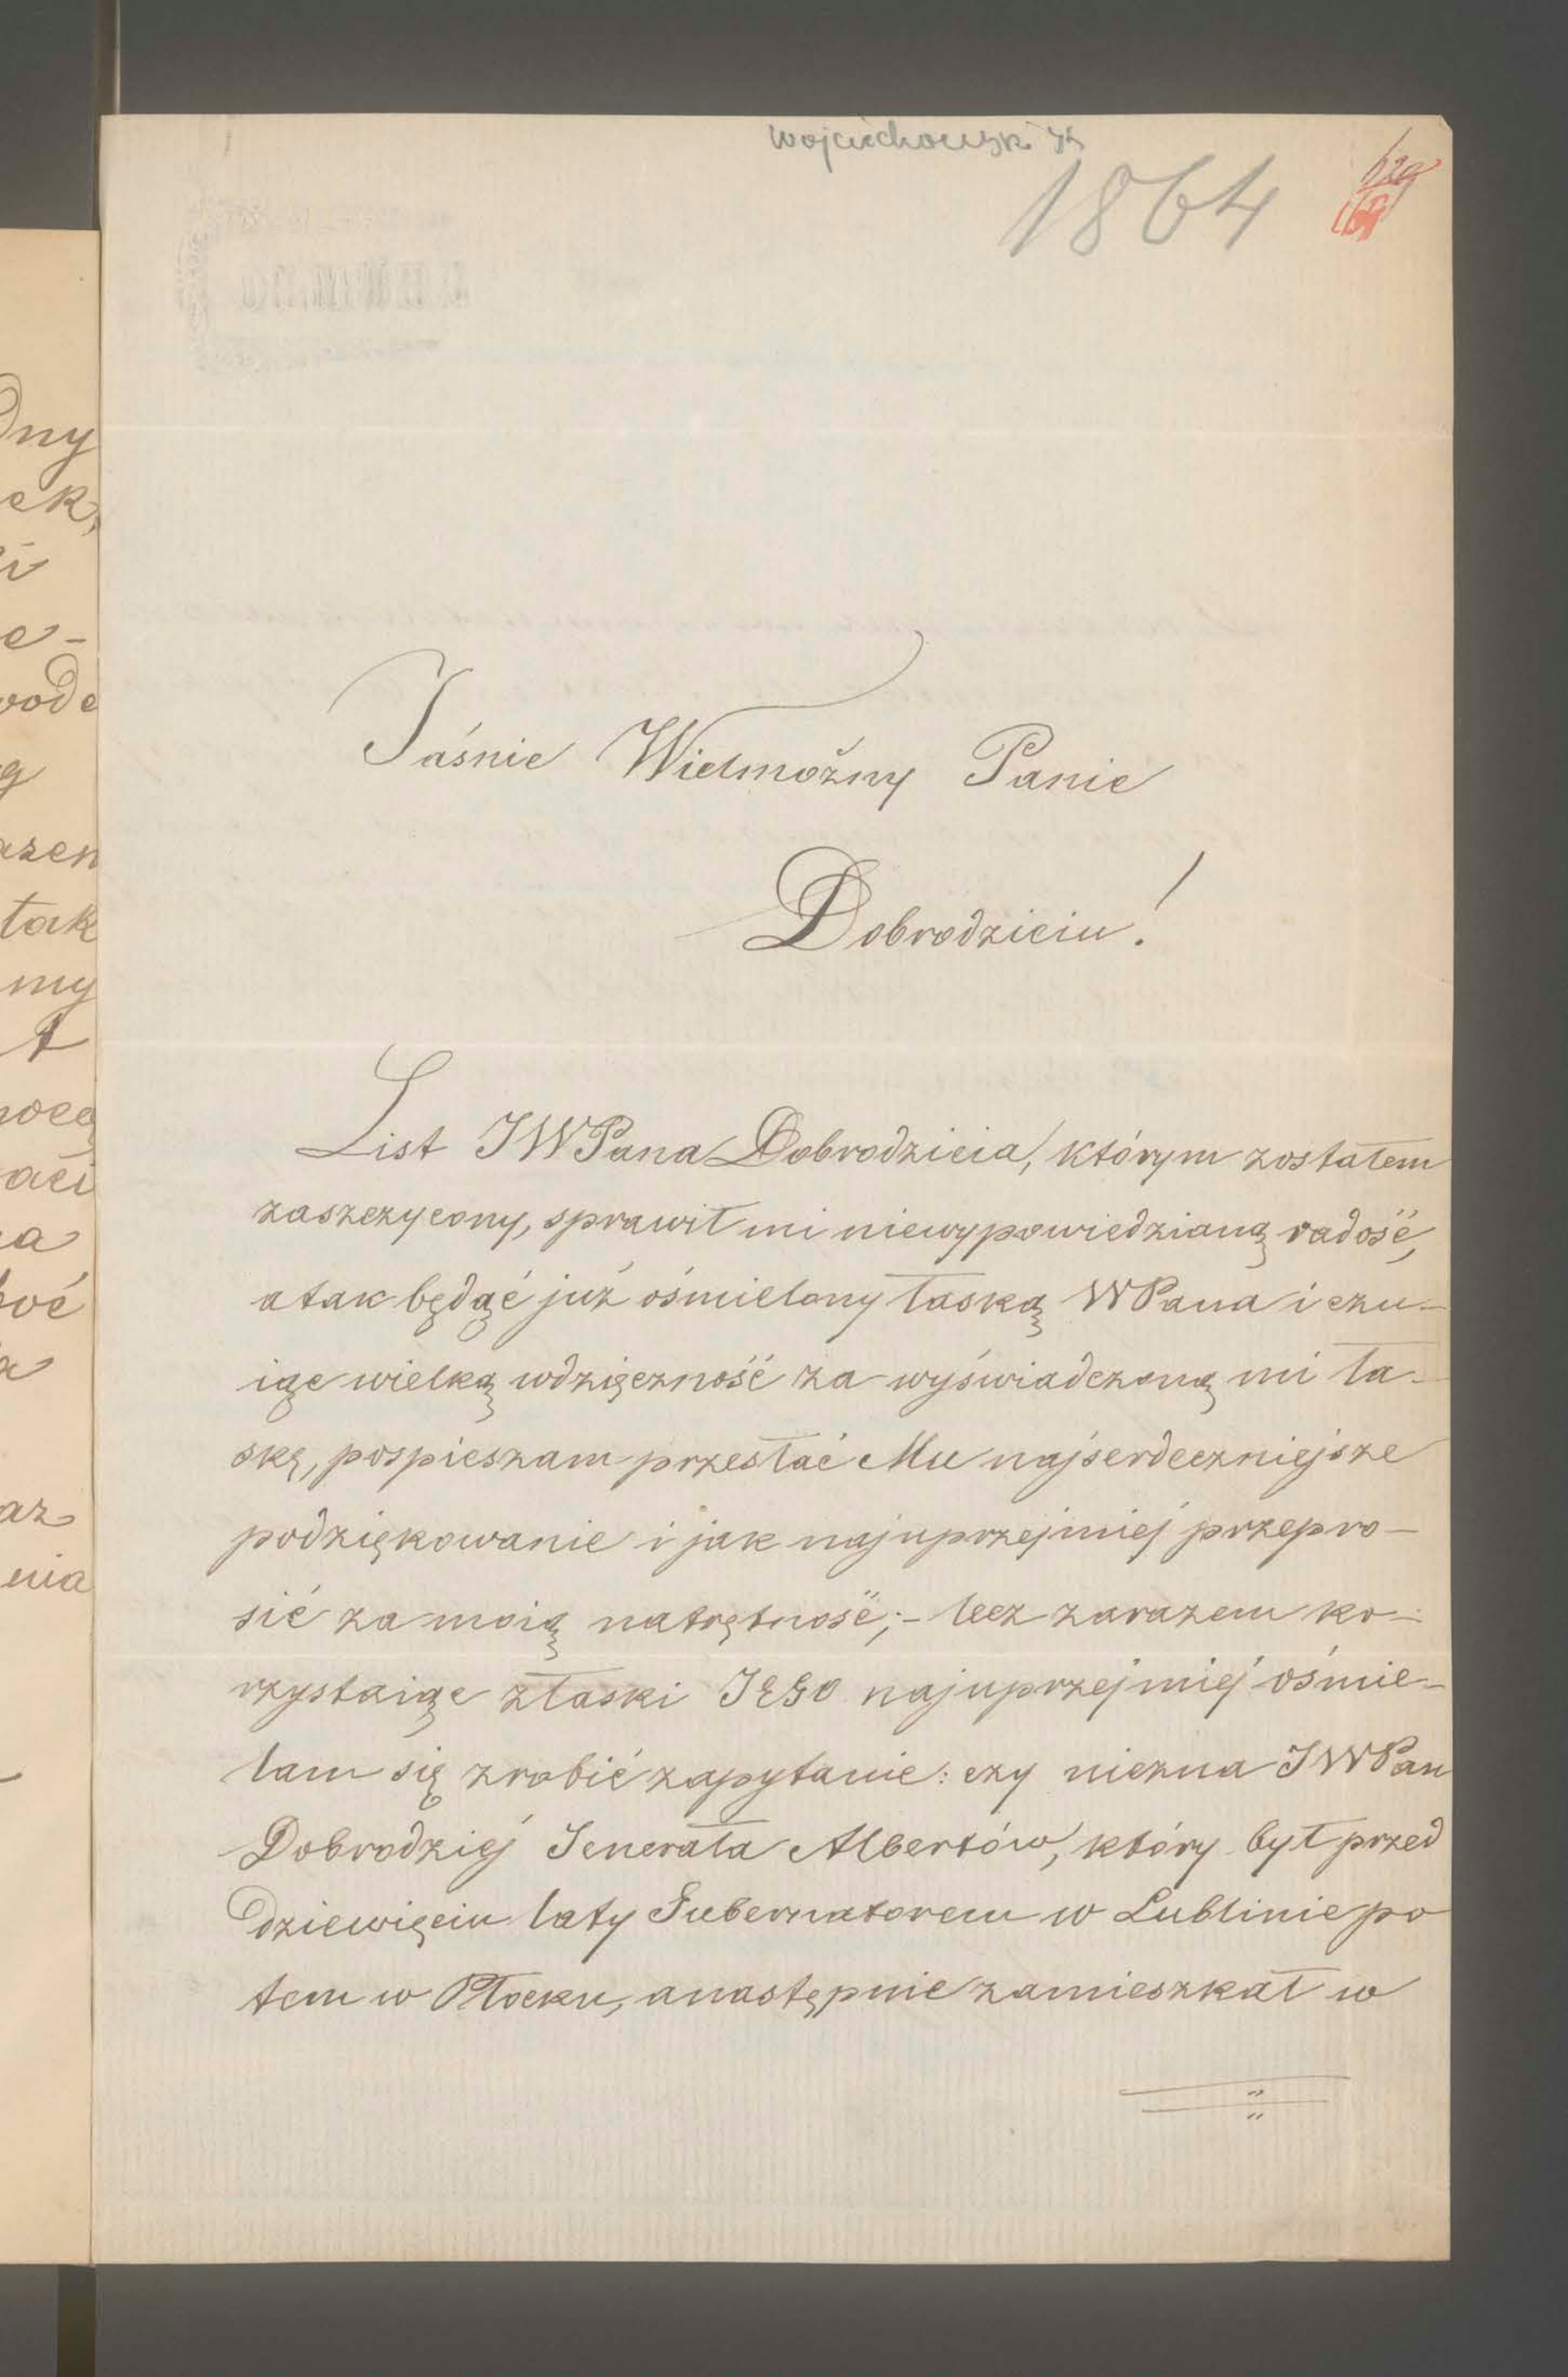 Wojciechowski
1864
Jaśnie Wielmożny Panie
Dobrodzieiu!
List JWPana Dobrodzieia, którym zostałem
zaszczycony, sprawił mi niewypowiedzianą radość,
a tak będąć już ośmielony łaską WPana i czu-
iąc wielką wdzięczność za wyświadczoną mi ła-
skę, pospieszam przesłać Mu najserdeczniejsze
podziękowanie i jak najuprzejmiej przepro-
sić za moią natrętność;- lecz zarazem ko-
rzystaiąc z łaski JEGO najuprzejmiej ośmie-
lam się zrobić zapytanie: czy niezna JWPan
Dobrodziej Jenerała Albertów, który był przed
dziewięciu laty Gubernatorem w Lublinie po
tem w Płocku, a następnie zamieszkał w
dny
ek,
e-
wode
azen
tak
my
ł
aci
a
az
enia